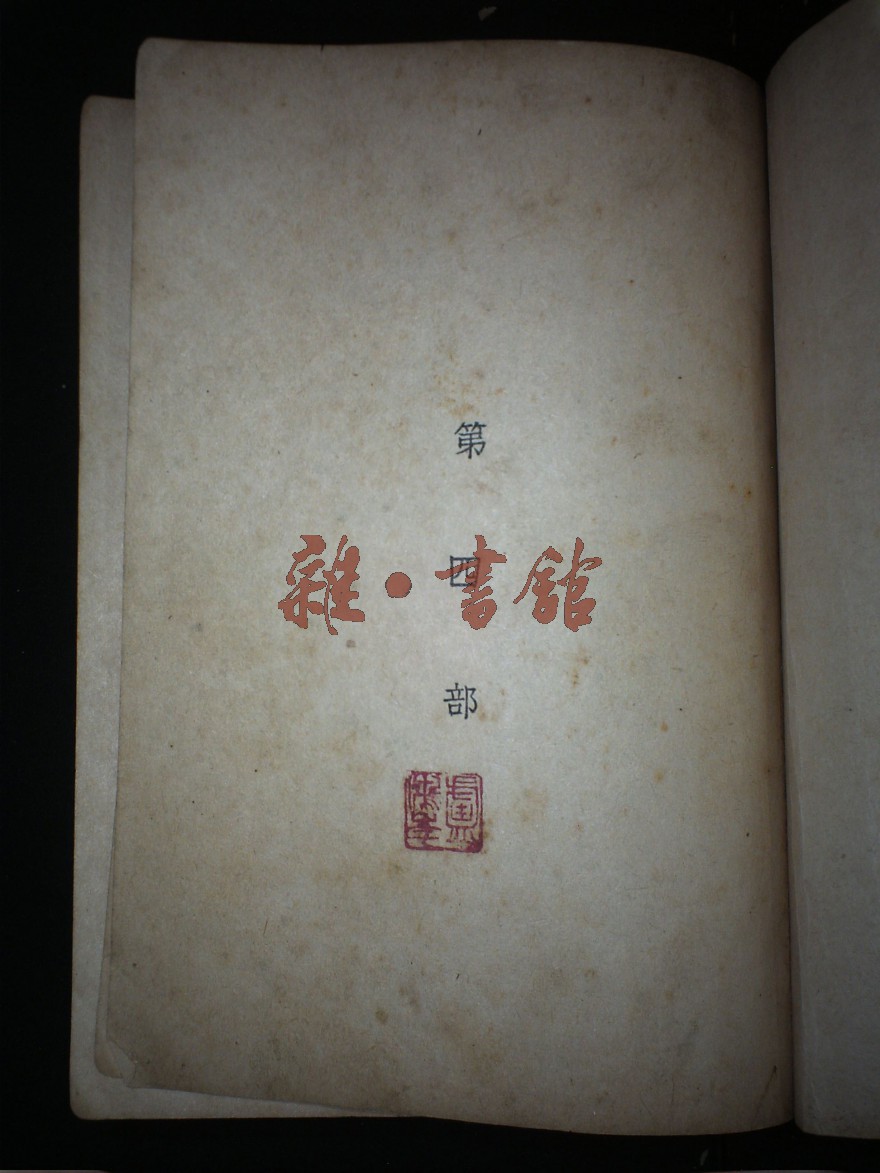 第四部
雜·書館